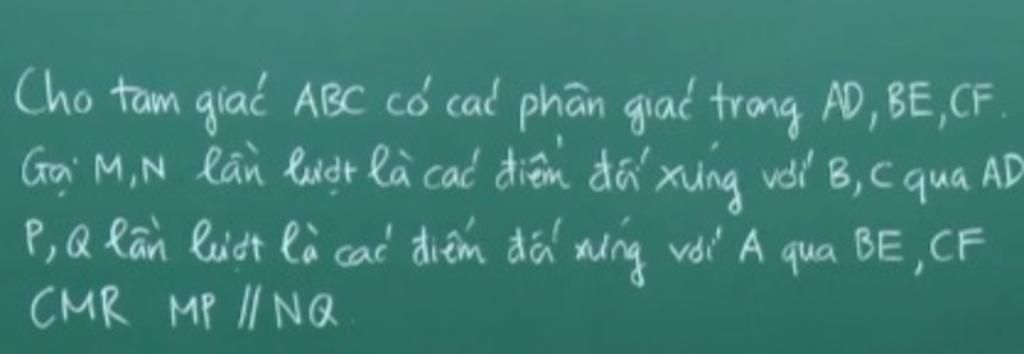 Cho tam giác ABC có các phân giác trong AD, BE, CF.
Gọi M, N lần lượt là các điểm đối xứng với B, C qua AD
P, Q lần lượt là các điểm đối xứng với A qua BE, CF
CMR MP // NQ.